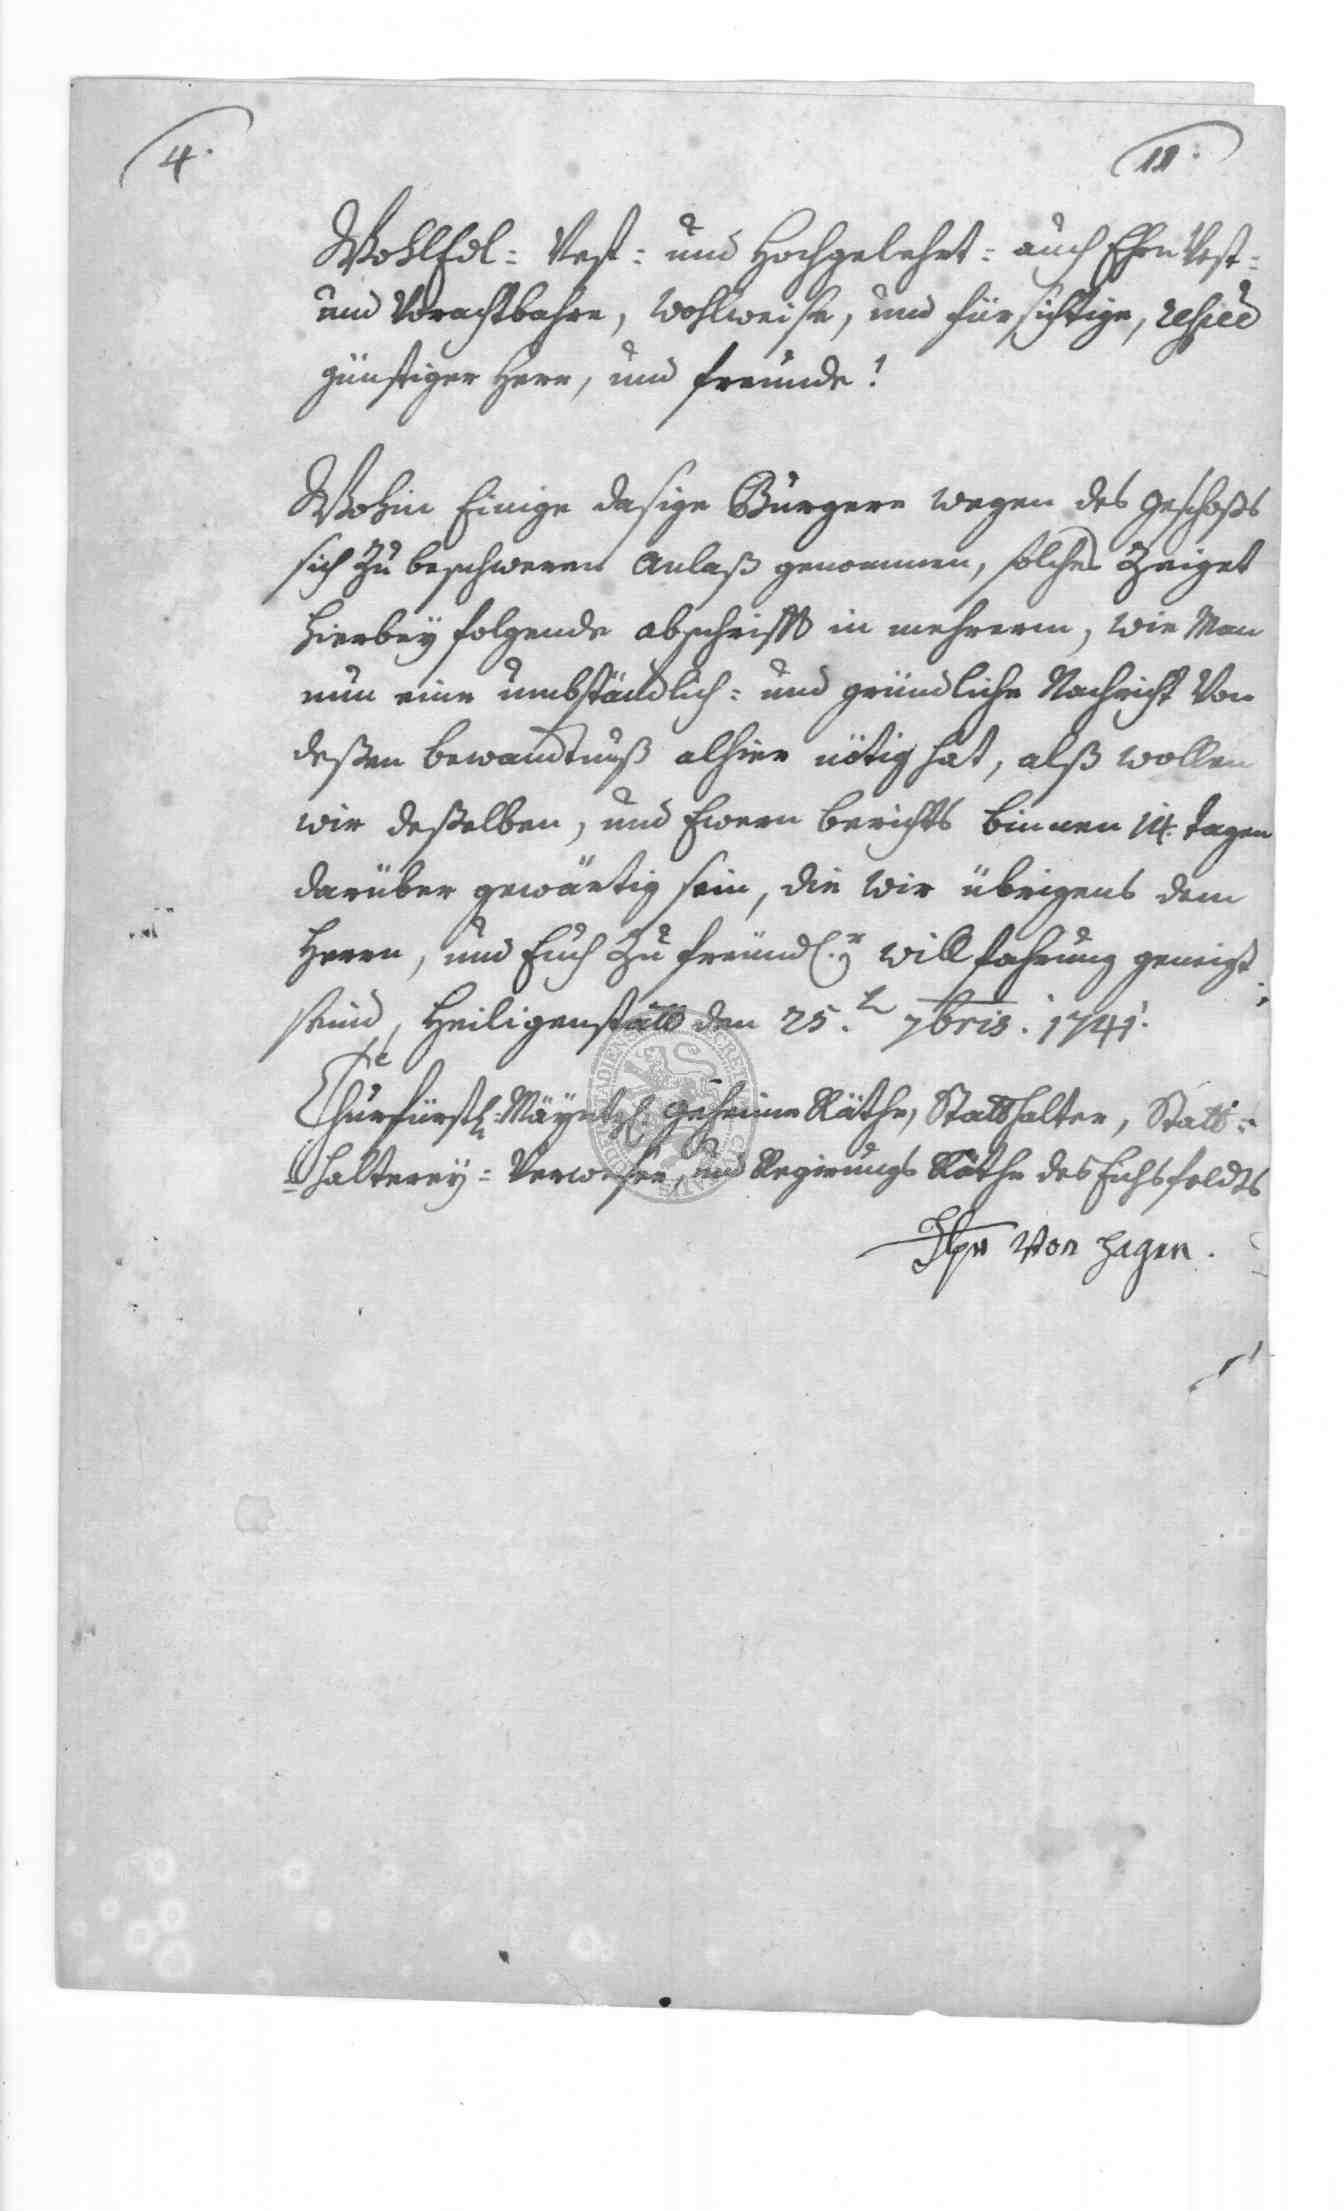 4.
11.
WohlEdl- Vest- und Hochgelehrt- auch EhrnVest-
und Vorachtbahre, Wohlweise, und fürsichtige,
günstiger Herr, und freunde!
Wohin Einige dasige Bürgere wegen des geschoßes
sich zu beschweren Anlaß genommen, solches Zeiget
hierbey folgende abschrifft in mehrerem, wie Man
nun eine umbständlich- und gründliche Nachricht Von
deßen bewandtnuß alhier nötig hat, alß wollen
wir deßelben, und Ewern berichts binnen 14. tagen
darüber gewärtig sein, die wir übrigens dem
Herrn, und Euch zu freündl.r willfahrung geneigt
seind, Heiligenstatt den 25.t 7bris. 1741.
Churfürstl. Mäyntzl. geheime Räthe, Statthalter, Statt-
halterey- Verweser, und Regierungs Räthe des Eichsfeldts
von Hagen.